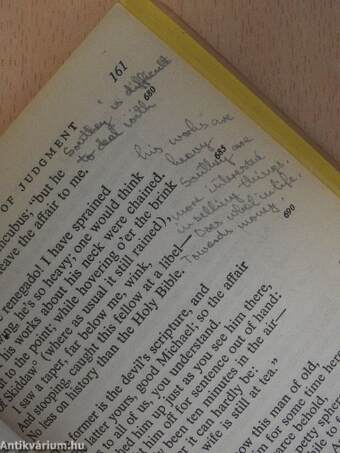 161
OF JUDGMENT
"Southey" is difficult
to deal with
680
ncubus; "but he
leave the affair to me.
renegado! I have sprained
ng, he's so heavy; one would think
his works about his neck were chained.
to the point; while hovering o'er the brink
Skiddaw" (where as usual it still rained),
I saw a taper, far below me, wink,
And stooping, caught this fellow at a libel—
No less on history than the Holy Bible.
his works are
heavy
685
Southey are
more interested
in selling things.
Does what in life.
Towards money
690
former is the devil's scripture, and
latter yours, good Michael; so the affair
to all of us, you understand.
ched him up just as you see him there,
t him off for sentence out of hand:
ly been ten minutes in the air—
er it can hardly be:
wife is still at tea."
this man of old,
him for some time here
arce behold,
petty sphere
antikvarium.hu
Antikvárium.hu